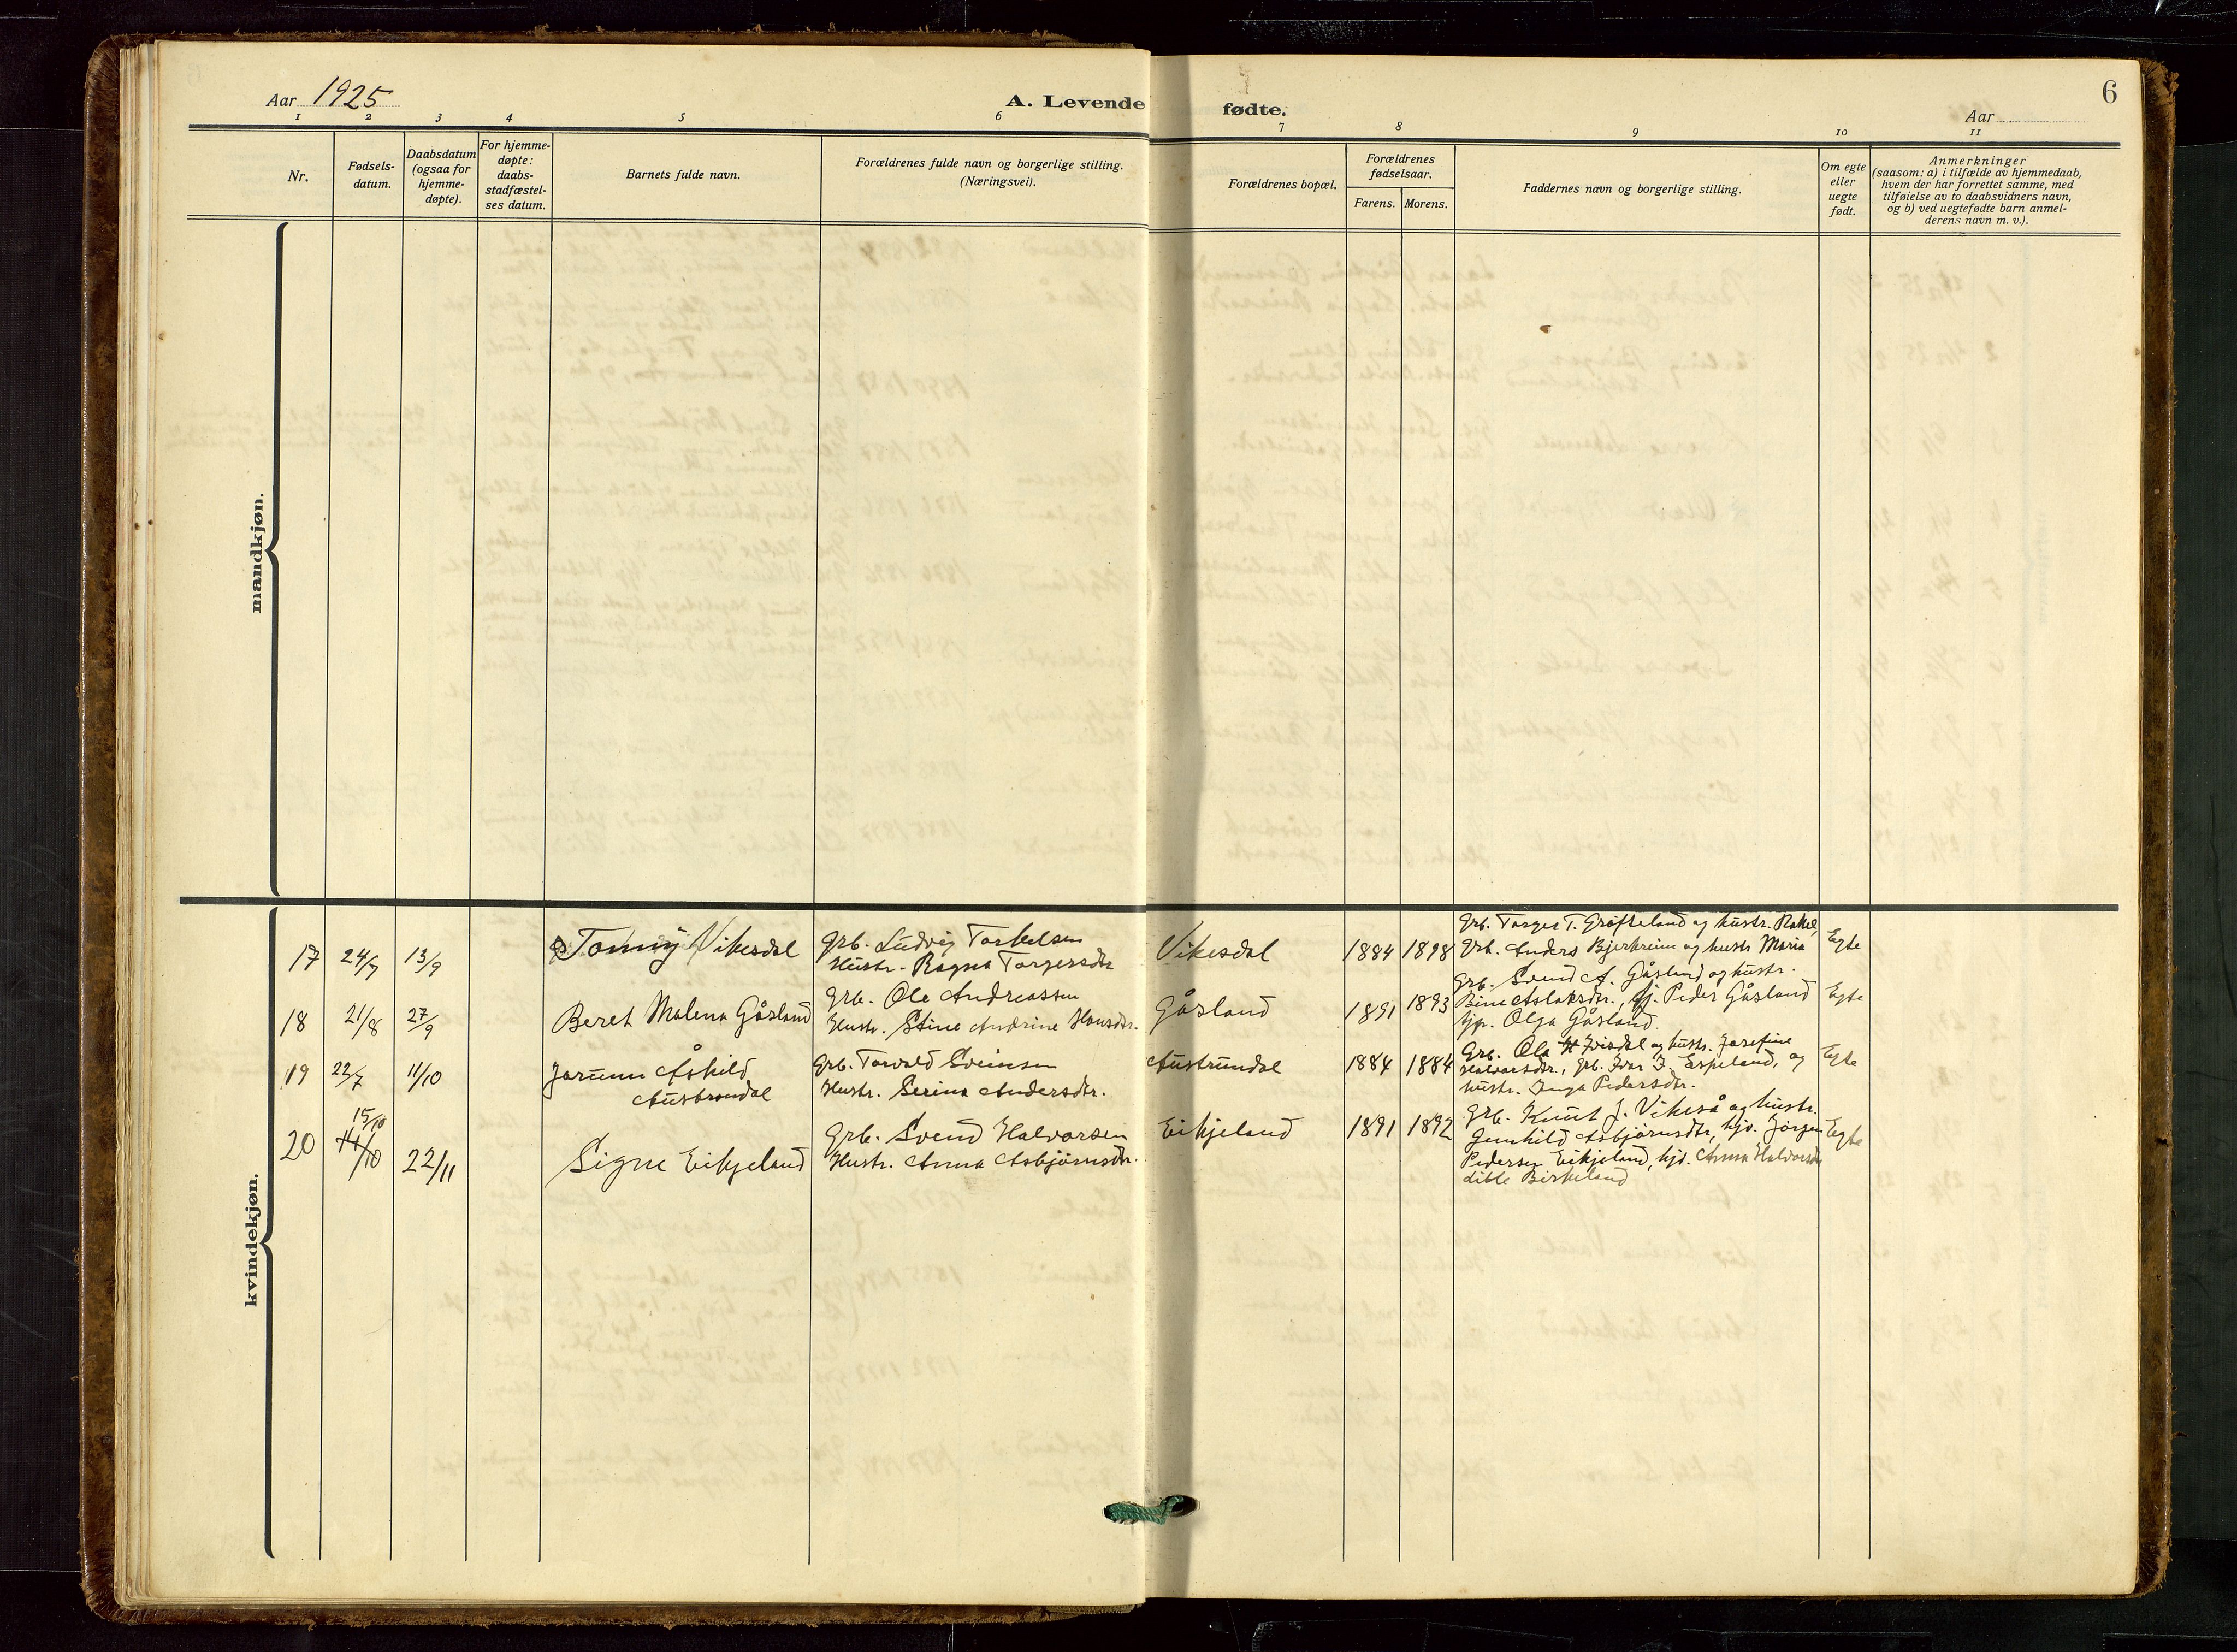 Aar 1925
A. Levende fødte.
Aar
6
1 2 3 4 5 6 7 8 9 10 11
Nr.
Fødsels-
datum.
Daabsdatum
(ogsaa for
hjemme-
døpte).
For hjemme-
døpte:
daabs-
stadfæstel-
ses datum.
Barnets fulde navn.
Forældrenes fulde navn og borgerlige stilling.
(Næringsvei).
Forældrenes bopæl.
Forældrenes
fødselsaar.
Farens. Morens.
Faddernes navn og borgerlige stilling.
Om egte
eller
uegte
født.
Anmerkninger
(saasom: a) i tilfælde av hjemmedaab,
hvem der har forrettet samme, med
tilføielse av to daabsvidners navn,
og b) ved uegtefødte barn anmel-
derens navn m. v.).
mandkjøn.
kvindekjøn.
17 24/7 13/9
Tonny Vikesdal
Grb. Ludvig Torkelsen
Hustr. Ragna Torgersdtr
Vikesdal
1884 1898
Grb. Torger T. Grøfteland og hustr. Rakel,
Grb. Anders Bjerkreim og hustr Maria
Egte
18 21/8 27/9
Beret Malena Gåsland
Grb. Ole Andreassen
Hustr. Stine Andrine Hansdtr.
Gåsland
1891 1893
Grb. Svend A. Gåsland og hustr.
Bine Aslaksdtr., Gj. Peder Gåsland
hjp. Olga Gåsland.
Egte
19 22/7 11/10
Jorunn Åshild
Austrumdal
Grb. Torvald Sveinsen
Hustr. Serina Andersdtr.
Austrumdal
1884 1884
Grb. Ola H Ivisdal og hustr. Josefine
Halvorsdtr., Grb. Ivar I. Espeland, og
hustr. Inga Pedersdtr.
Egte
15/10
20 14/10 22/11
Signe Eikjeland
Grb. Svend Halvorsen
Hustr. Anna Asbjörnsdtr.
Eikjeland
1891 1892
Grb. Knut J. Vikeså og hustr.
Gunhild Asbjörnsdtr, hjv. Jörgen
Pedersen Eikjeland, hjd. Anna Halvorsdtr
Litle Birkeland
Egte